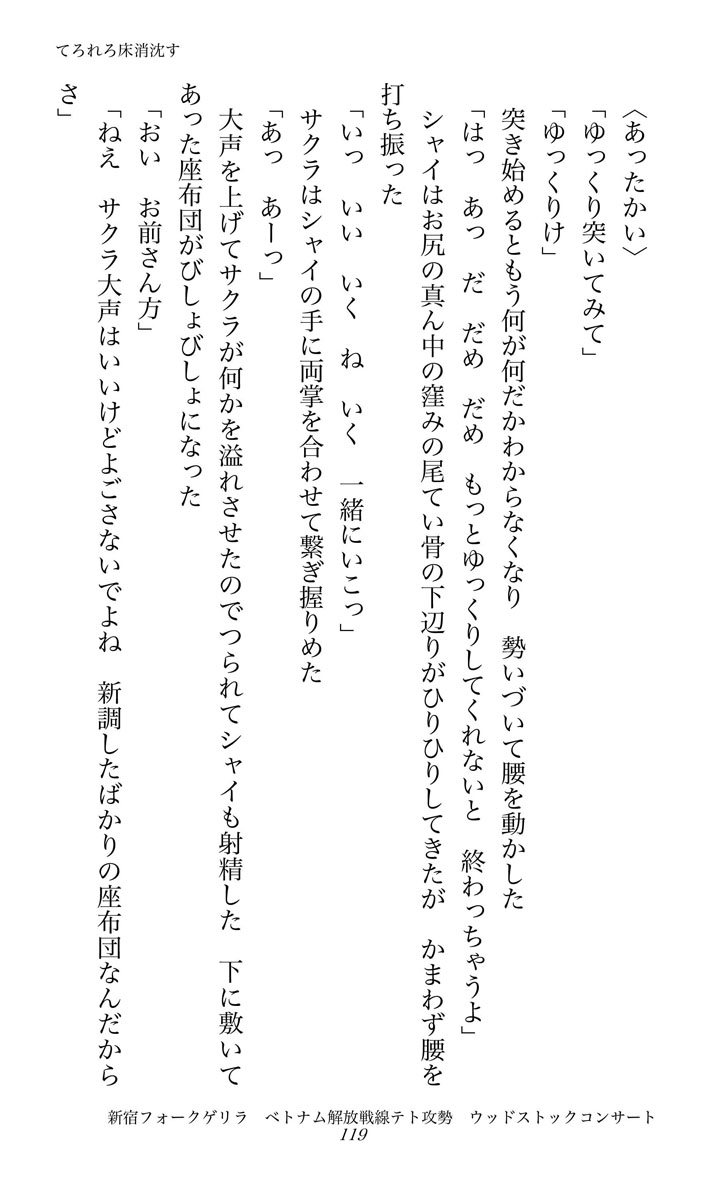 てろれろ床消沈す
〈あったかい〉
「ゆっくり突いてみて」
「ゆっくりけ」
突き始めるともう何が何だかわからなくなり　勢いづいて腰を動かした
「はっ　あっ　だ　だめ　だめ　もっとゆっくりしてくれないと　終わっちゃうよ」
シャイはお尻の真ん中の窪みの尾てい骨の下辺りがひりひりしてきたが　かまわず腰を
打ち振った
「いっ　いい　いく　ね　いく　一緒にいこっ」
サクラはシャイの手に両掌を合わせて繋ぎ握りめた
「あっ　あーっ」
大声を上げてサクラが何かを溢れさせたのでつられてシャイも射精した　下に敷いて
あった座布団がびしょびしょになった
「おい　お前さん方」
「ねえ　サクラ大声はいいけどよごさないでよね　新調したばかりの座布団なんだから
さ」
新宿フォークゲリラ　ベトナム解放戦線テト攻勢　ウッドストックコンサート
119